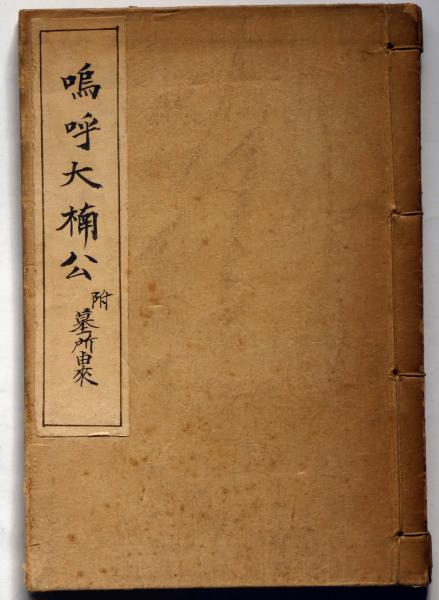 嗚呼大楠公
附
墓所由來